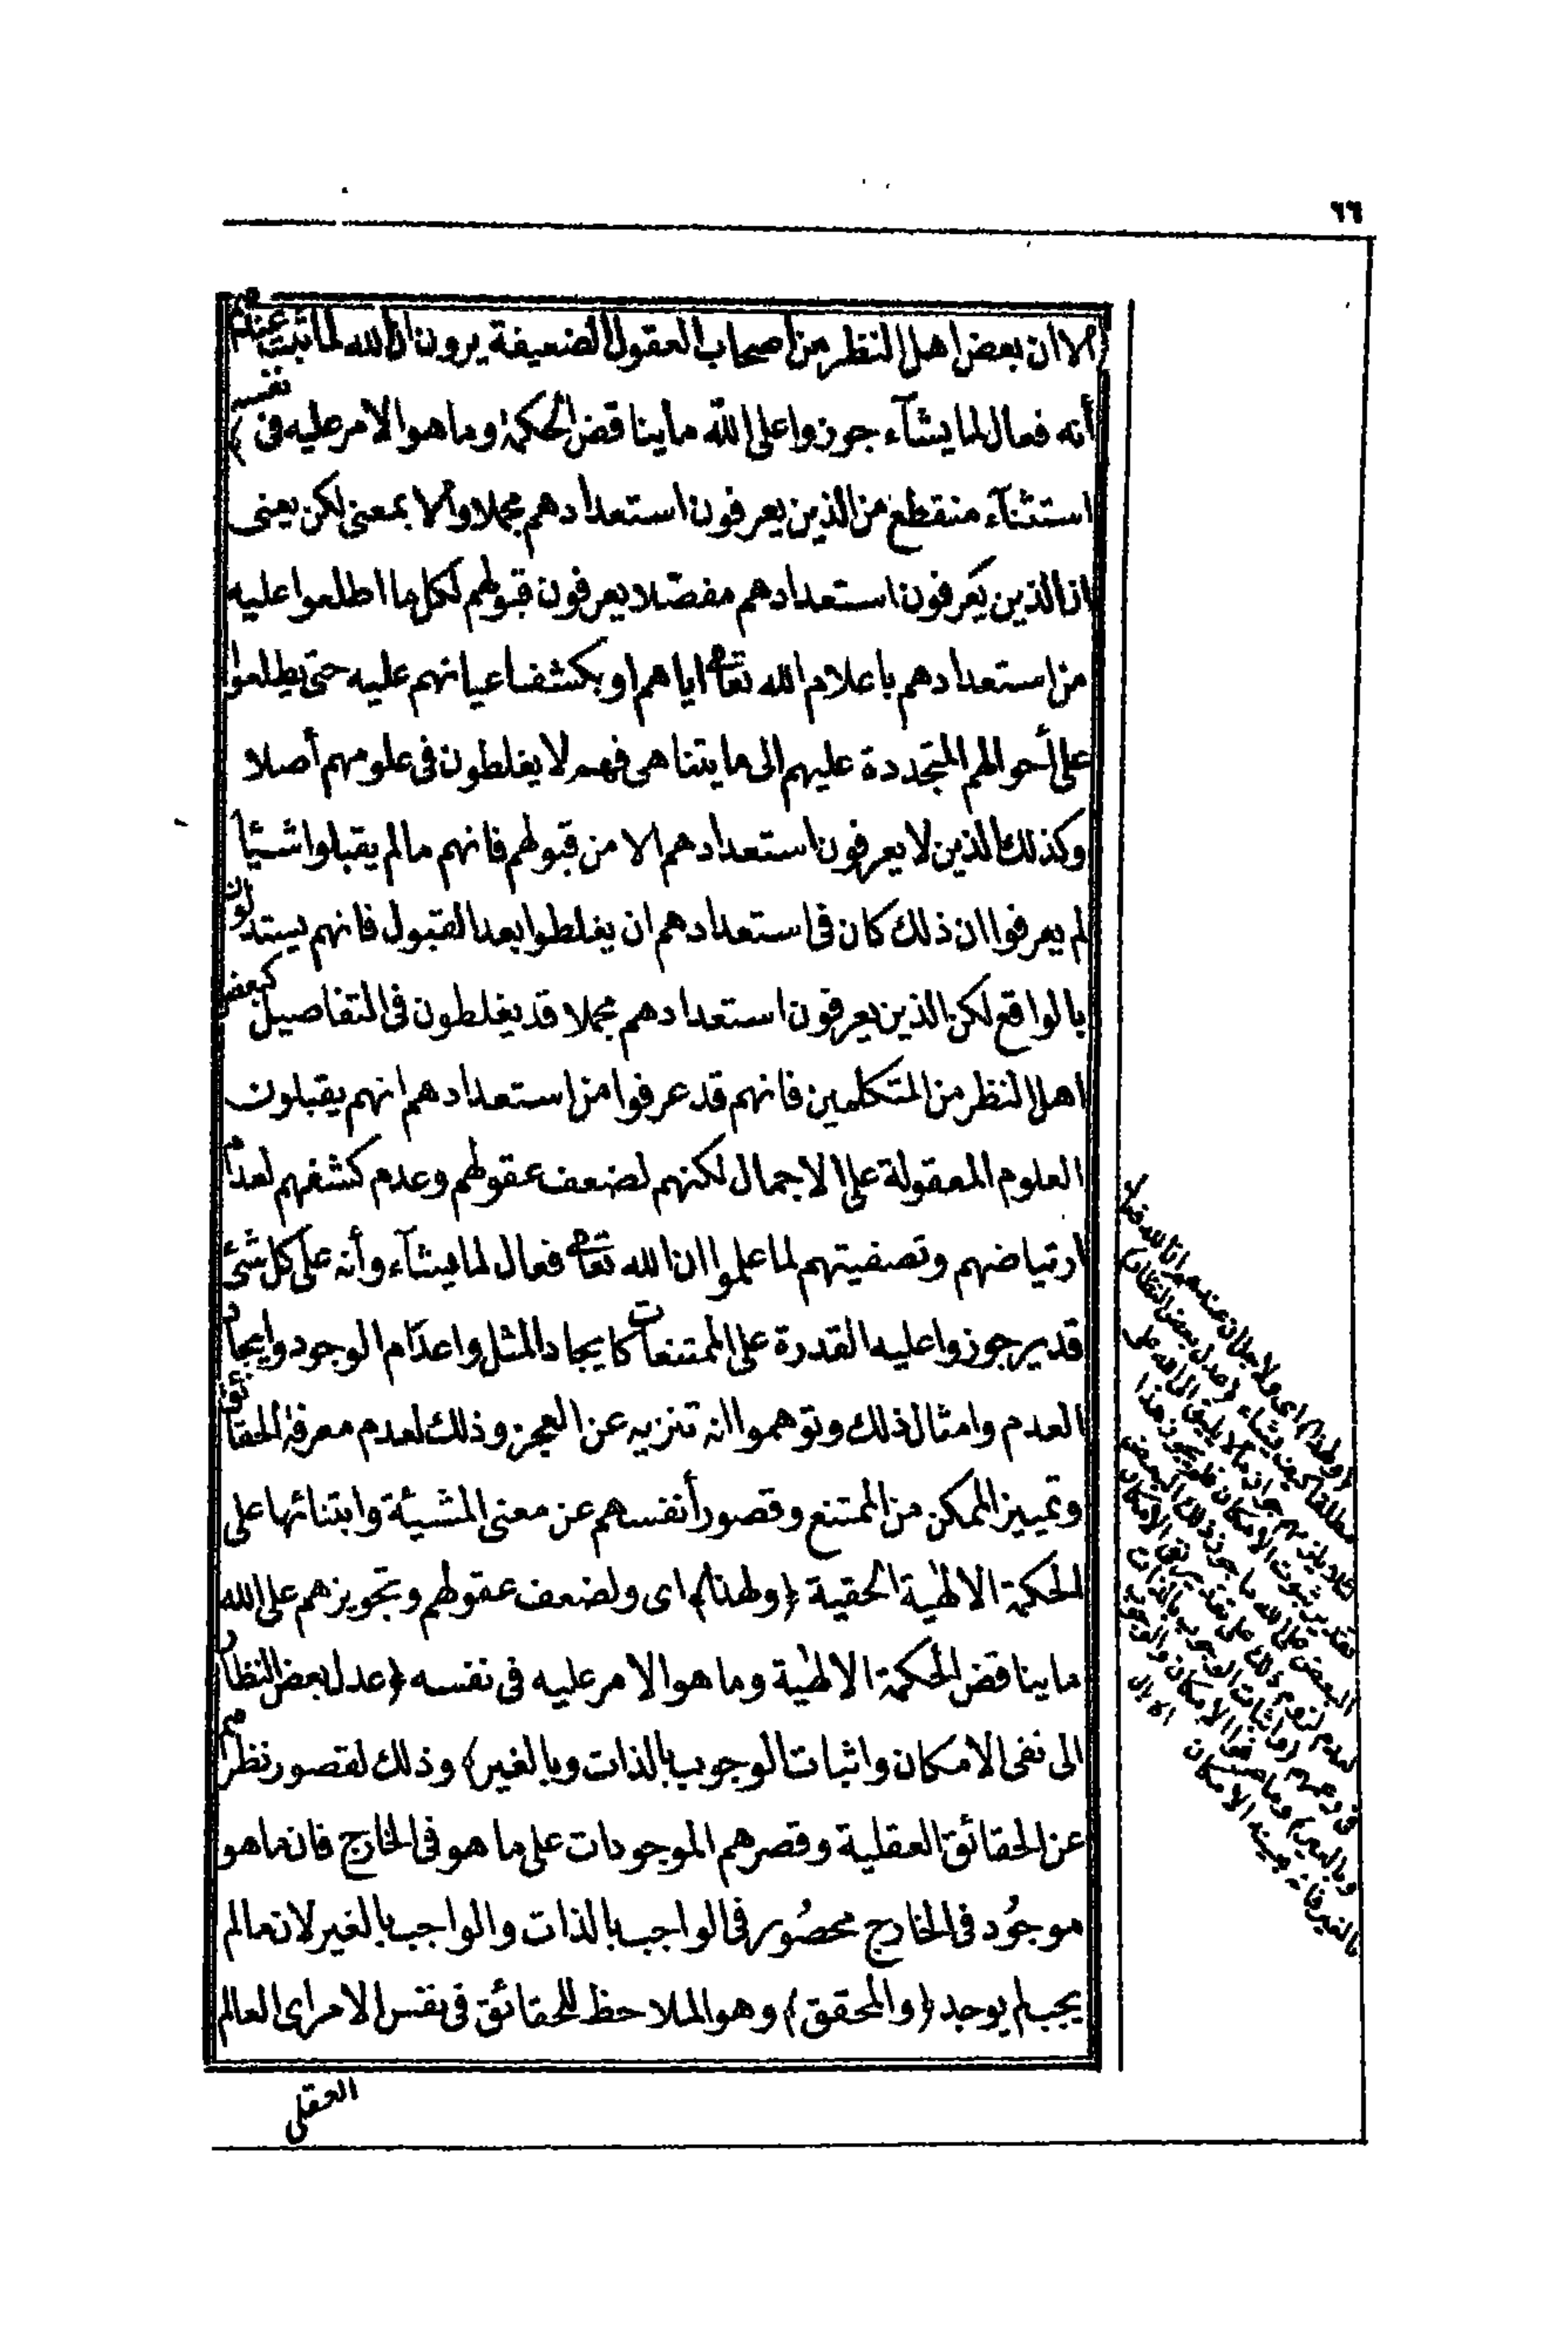 ٦٦
الا ان بعض اهل النظر من اصحاب العقول الضعيفة يرون ان الله لما ثبت عندهم
أنه فعال لما يشآء جوزوا على الله ما يناقض الحكمة وما هو الامر عليه فى نفسه ﴾
استثنآء منقطع من الذين يعرفون استعدادهم مجملا والا بمعنى لكن يعنى
ان الذين يعرفون استعدادهم مفصّلا يعرفون قبولهم لكل ما اطلعوا عليه
من استعدادهم باعلام الله تعالى اياهم او بكشف اعيانهم عليه حتى يطلعوا
على أحوالهم المتجددة عليهم الى ما يتناهى فهم لا يغلطون فى علومهم أصلا
وكذلك الذين لا يعرفون استعدادهم الا من قبولهم فانهم ما لم يقبلوا شيئا
لم يعرفوا ان ذلك كان فى استعدادهم ان يغلطوا بعد القبول فانهم يستدلون
بالواقع لكن الذين يعرفون استعدادهم مجملا قد يغلطون فى التفاصيل كبعض
اهل النظر من المتكلمين فانهم قد عرفوا من استعدادهم انهم يقبلون
العلوم المعقولة على الاجمال لكنهم لضعف عقولهم وعدم كشفهم لعدم
ارتياضهم وتصفيتهم لما علموا ان الله تعالى فعال لما يشآء وأنه على كل شئ
قدير جوزوا عليه القدرة على الممتنعات كايجاد المثل واعدام الوجود وايجاد
العدم وامثال ذلك وتوهموا انه تنزيه عن العجز وذلك لعدم معرفة الحقائق
وتمييز الممكن من الممتنع وقصور أنفسهم عن معنى المشيئة وابتنائها على
الحكمة الالهية الحقية ﴿ ولهذا ﴾ اى ولضعف عقولهم وتجويزهم على الله
ما يناقض الحكمة الالهية وما هو الامر عليه فى نفسه ﴿ عدل بعض النظار
الى نفى الامكان واثبات الوجوب بالذات وبالغير ﴾ وذلك لقصور نظرهم
عن الحقائق العقلية وقصرهم الموجودات على ما هو فى الخارج فان ما هو
موجُود فى الخارج محصُور فى الواجب بالذات والواجب بالغير لان ما لم
يجب لم يوجد ﴿ والمحقق ﴾ وهو الملاحظ للحقائق فى نفس الامر اى العالم
العقلى